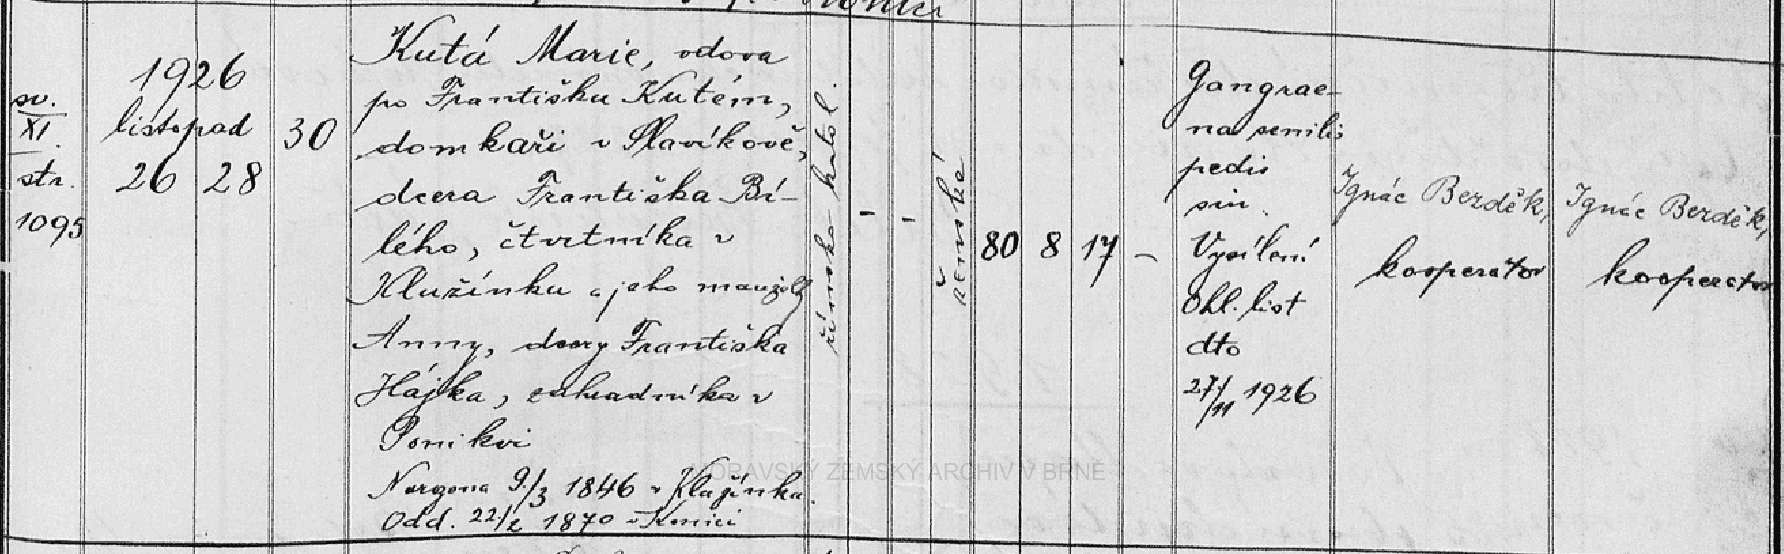 sv.
XI.
str.
1095
1926
listopad
26 28
30
Kutá Marie, vdova
po Františku Kutém,
domkaři v Slavíkově,
dcera Františka Bí-
lého, čtvrtníka v
Klužínku a jeho manželky
Anny, dcery Františka
Hájka, zahradníka v
Ponikvi
Narozena 9/3 1846 v Klužínku.
Odd. 22/2 1870 v
římsko katol.
-
-
ženské
80 8 17 -
Gangrae-
na senilis
pedis
sin.
Vysílení
Ohl. list
dto
27/11 1926
Ignác Berděk,
kooperátor
Ignác Berděk,
kooperátor
MORAVSKÝ ZEMSKÝ ARCHIV V BRNĚ